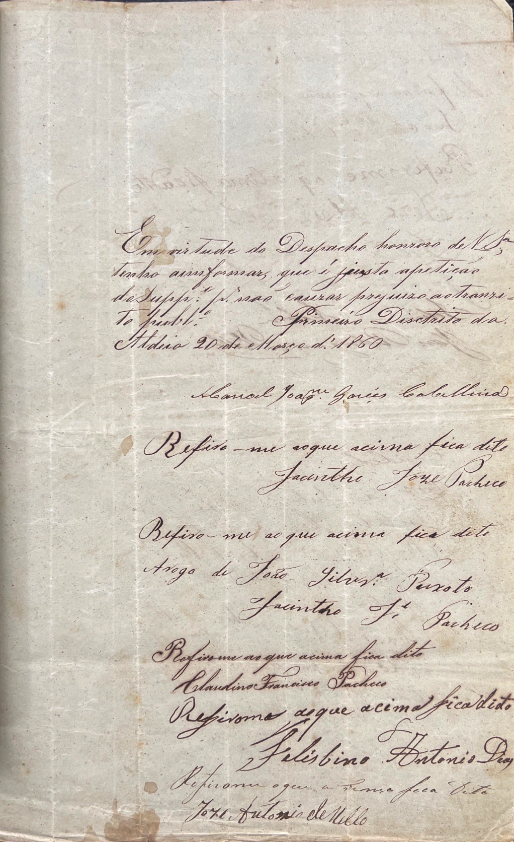 Em virtude do Despacho honroso de V Sª,
tenho ainformar, que é justa apetição
do Suppe. pr. não cauzar prejuizo aotranzi-
to publº. Primeiro Disctrito da
Aldeia 20 de Março d. 1860
Manoel Joaqm
Refiro-me aoque acima fica dito
Jacintho Joze Pacheco
Refiro-me ao que acima fica dito
Arogo de João Silvra Peixoto
Jacintho Je Pacheco
Refirome aoque acima fica dito
Claudino Francisco Pacheco
Refirome aoque acima fica dito
Felisbino Antonio
Refirome aque a sima fica dito
Joze Antonio de Mello